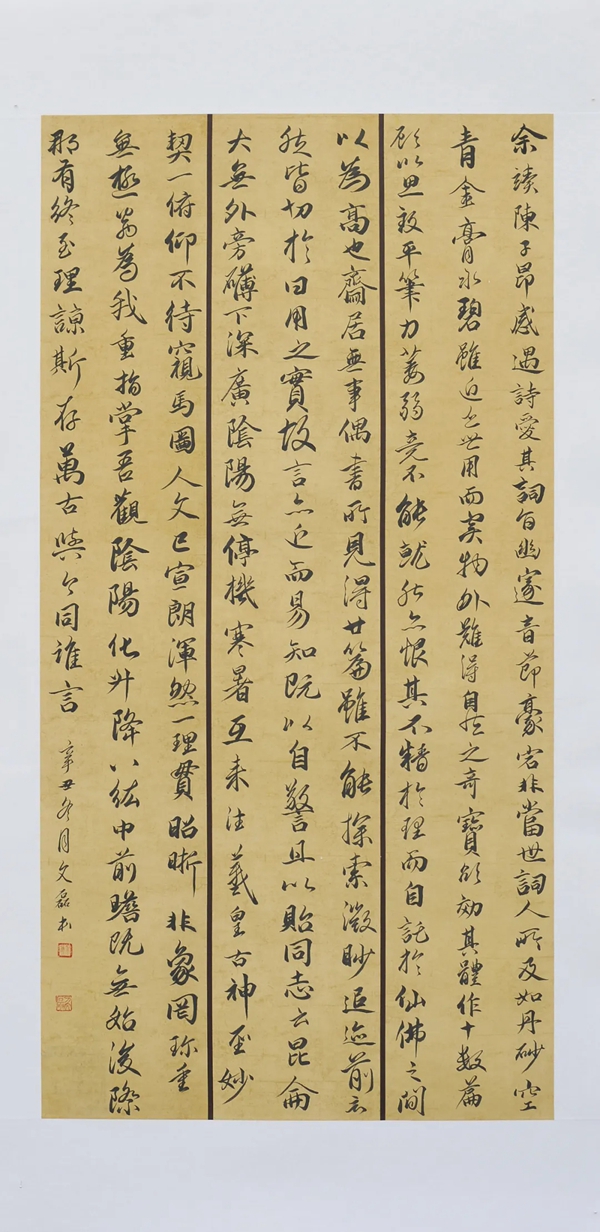 余讀陳子昂感遇詩愛其詞旨幽邃音節豪宕非當世詞人所及如丹砂空
青金膏水碧雖近乏世用而實物外難得自然之奇寶欲効其體作十數篇
顧以思致平筆力萎弱竟不能就然亦恨其不精於理而自託於仙佛之間
以為高也齋居無事偶書所見得廿篇雖不能探索微眇追迹前言
然皆切於日用之實故言亦近而易知既以自警且以貽同志云昆侖
大無外旁礴下深廣陰陽無停機寒暑互來往羲皇古神聖妙
契一俯仰不待窺馬圖人文已宣朗渾然一理貫昭晰非象罔珍重
無極翁為我重指掌吾觀陰陽化升降八紘中前瞻既無始後際
那有終至理諒斯存萬古與今同誰言
辛丑冬月文磊書